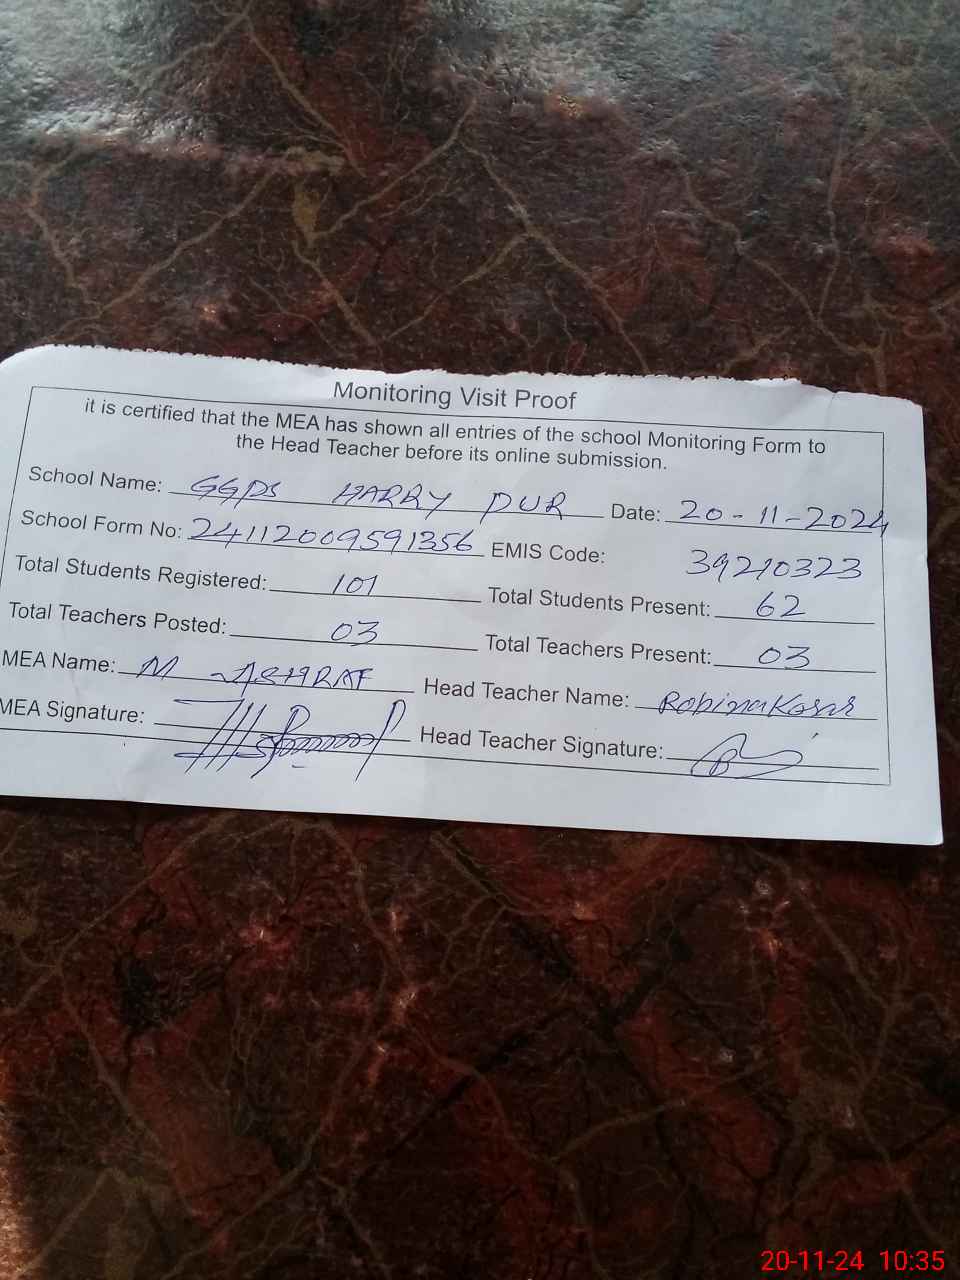 Monitoring Visit Proof
it is certified that the MEA has shown all entries of the school Monitoring Form to
the Head Teacher before its online submission.
School Name: GGPS HARRY PUR Date: 20-11-2024
School Form No: 24112009591356 EMIS Code: 39210323
Total Students Registered: 101 Total Students Present: 62
Total Teachers Posted: 03 Total Teachers Present: 03
MEA Name: M ASHRAF Head Teacher Name: Robina Kosar
MEA Signature: Head Teacher Signature:
20-11-24 10:35